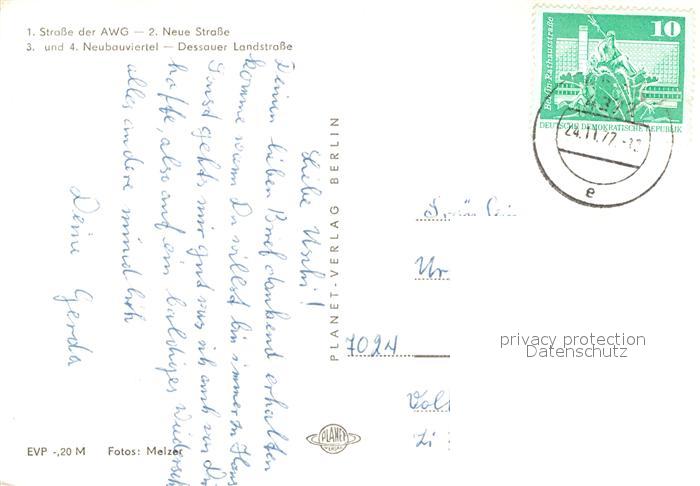 1. Straße der AWG — 2. Neue Straße
3. und 4. Neubauviertel — Dessauer Landstraße
Liebe Uschi!
Deinen lieben Brief dankend erhalten
komme wann Du willst bin immer zu Haus
Sonst gehts mir gut was ich auch von Dir
hoffe, also auf ein baldiges Wiederseh
alles andere mündlich
Deine Gerda
EVP -,20 M Fotos: Melzer
PLANET-VERLAG BERLIN
PLANET
VERLAG
10
Berlin-Rathausstraße
DEUTSCHE DEMOKRATISCHE REPUBLIK
24.11.77
e
Ur
7024
privacy protection
Datenschutz
Li